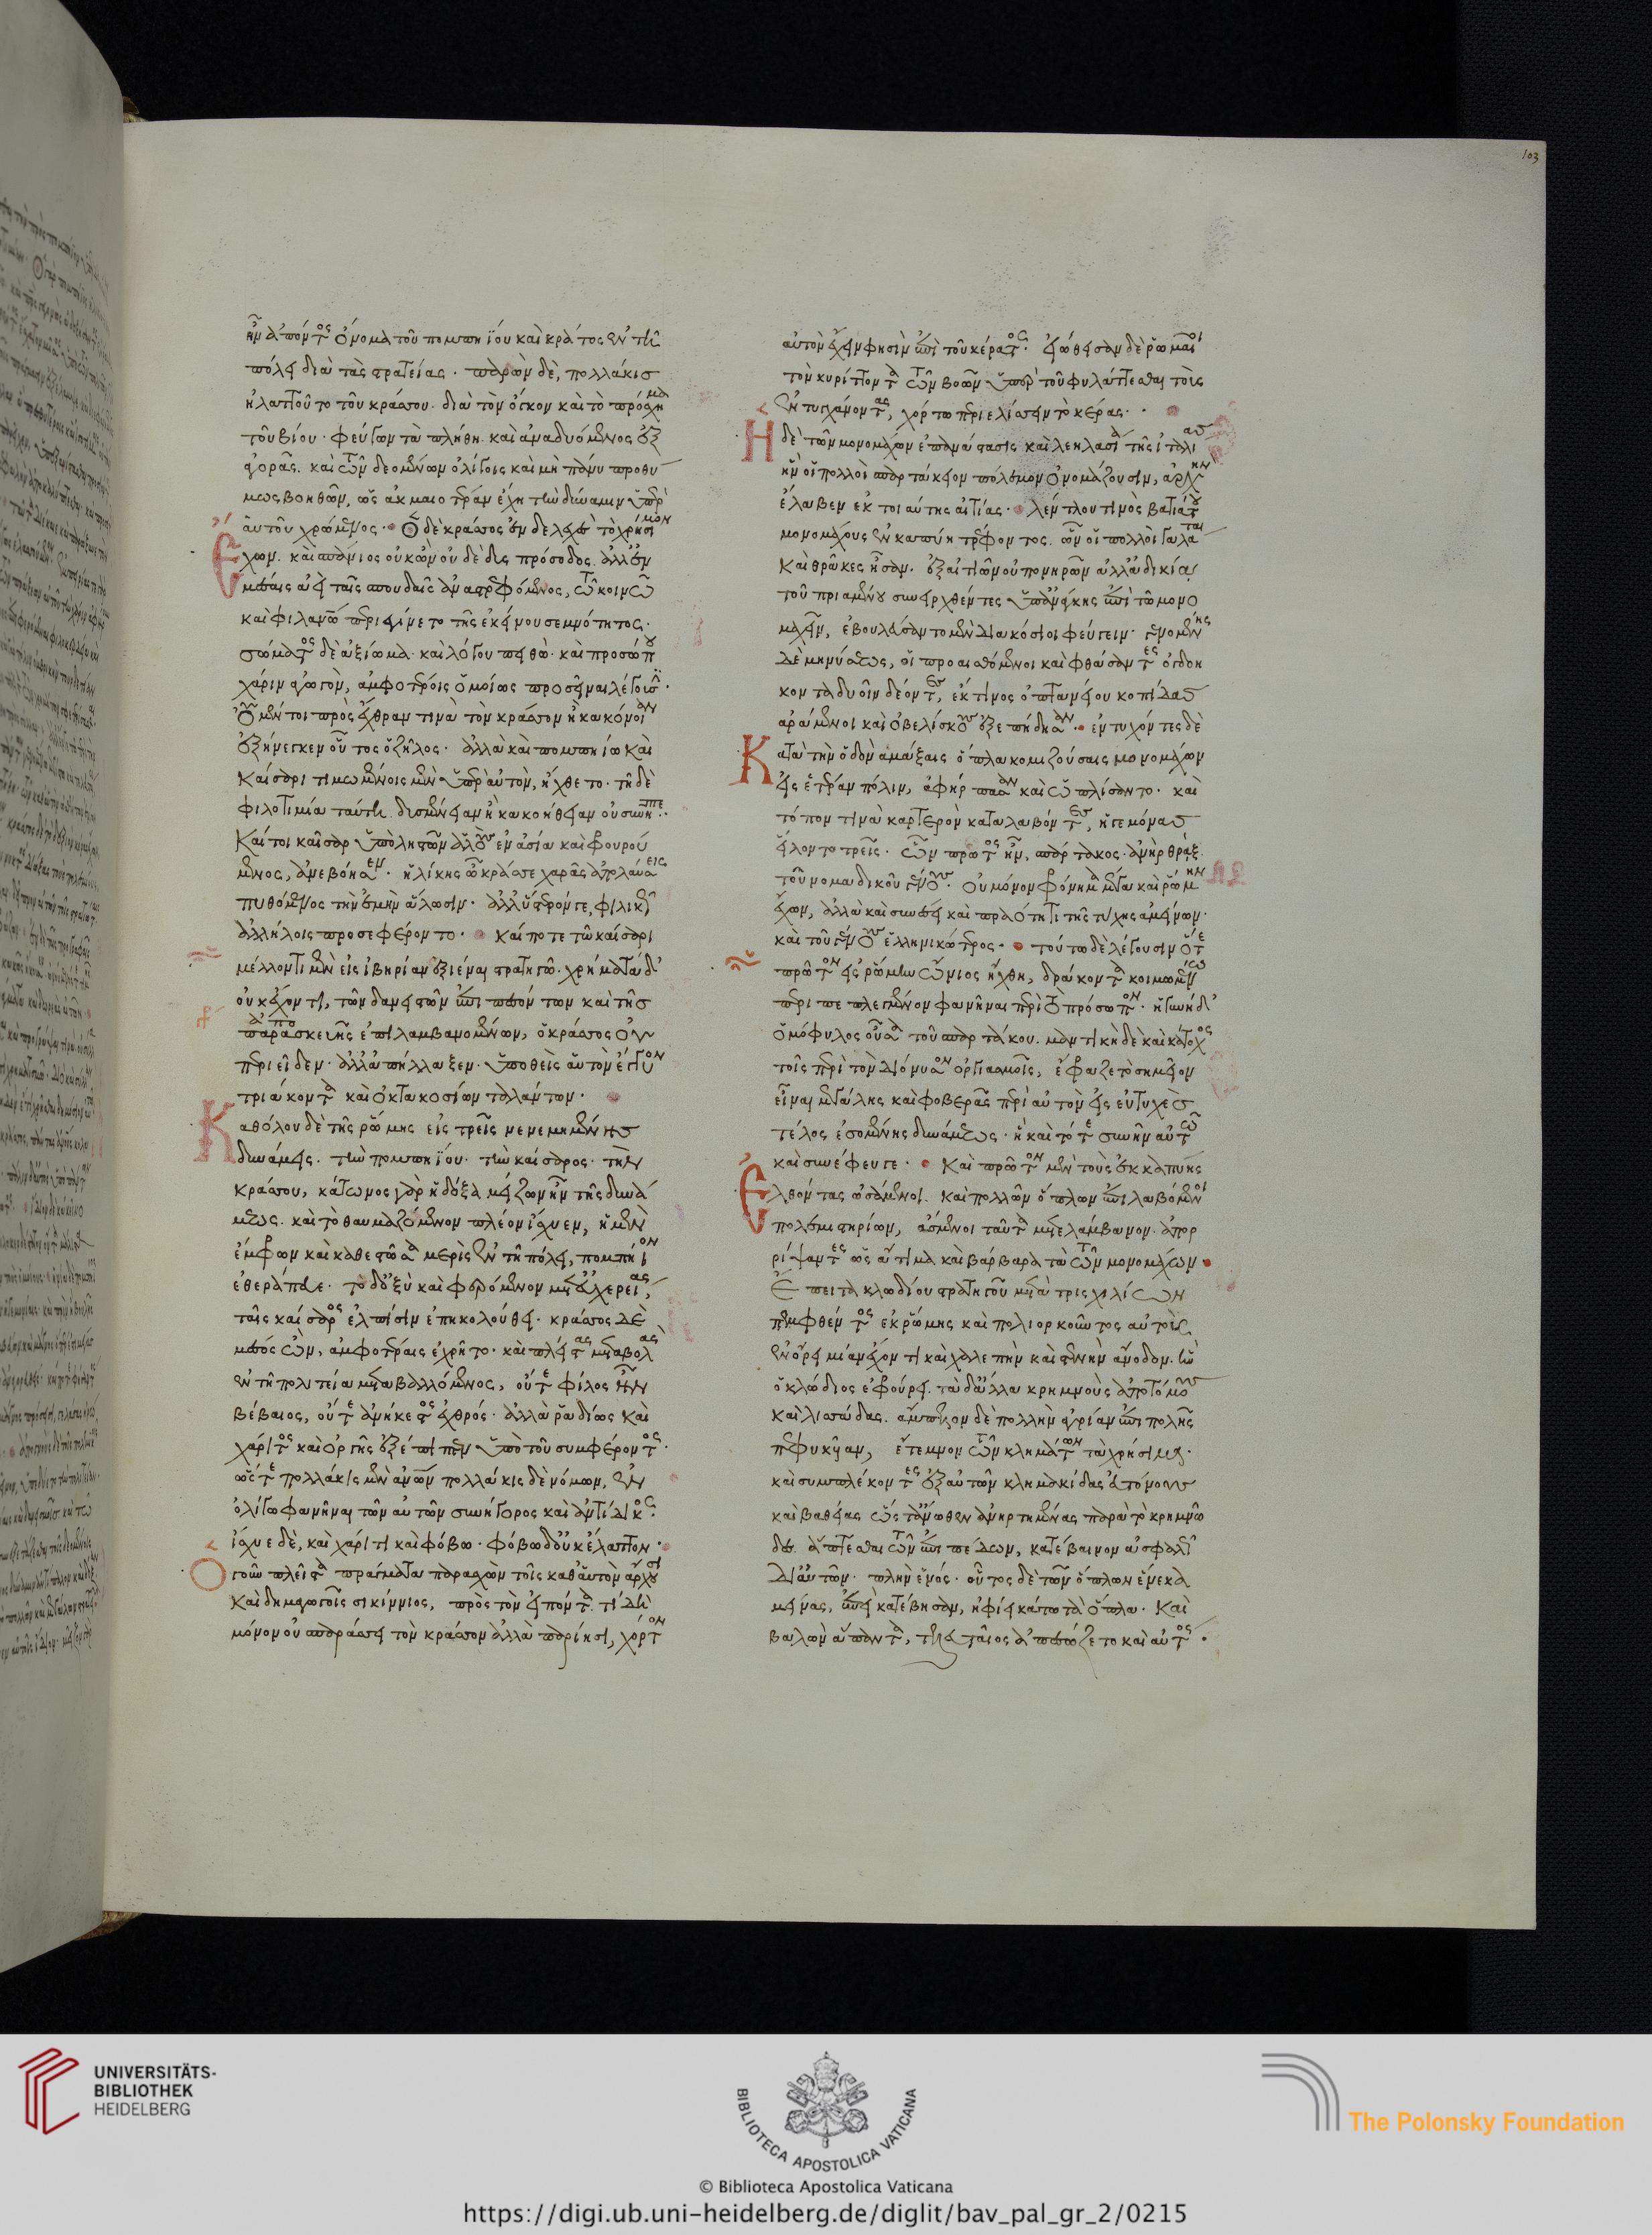 ἦν ἀπόντος ὄνομα τοῦ πομπηΐου καὶ κράτος ἐν τῆ
πόλει διὰ τὰς στρατείας. παρὼν δὲ, πολλάκις
ἠλαττοῦτο τοῦ κράσσου. διὰ τὸν ὄγκον καὶ τὸ πρόσχημα
τοῦ βίου. φεύγων τὰ πλήθη. καὶ ἀναδυόμενος ἐξ
ἀγορᾶς. καὶ τῶν δεομένων ὀλίγοις καὶ μὴ πάνυ προθύ
μως βοηθῶν, ὡς ἀκμαιοτέραν ἔχη τὴν δύναμιν ὑπὲρ
αὑτοῦ χρώμενος. Ὁ δὲ κράσσος ἐνδελεχὲς τὸ χρήσιμον
ἔχων. καὶ σπάνιος οὐκ ὢν οὐδὲ δυσπρόσοδος. ἀλλ' ἐν
μέσαις ἀεὶ ταῖς σπουδαῖς ἀναστρεφόμενος, τῶ κοινῶ
καὶ φιλανθρώπω περιεγίνετο τῆς ἐκείνου σεμνότητος.
σώματος δὲ ἀξίωμα. καὶ λόγου πειθὼ. καὶ προσώπου
χάριν ἀγωγὸν, ἀμφοτέροις ὁμοίως προσεῖναι λέγουσιν.
Οὐ μέντοι πρὸς ἔχθραν τινὰ τὸν κράσσον ἢ κακόνοιαν
ἐξήνεγκεν οὗτος ὁ ζῆλος. ἀλλὰ καὶ πομπηίω καὶ
καίσαρι τιμωμένοις μὲν ὑπὲρ αὐτὸν, ἤχθετο. τῆ δὲ
φιλοτιμία ταύτη. δυσμένειαν ἢ κακοήθειαν οὐ συνῆπτε.
Καίτοι καῖσαρ ὑπὸ ληστῶν ἁλοὺς ἐν ἀσία καὶ φρουρού
μενος, ἀνεβόησεν. ἡλίκης ὦ κράσσε χαρᾶς ἀπολαύσεις
πυθόμενος τὴν ἐμὴν ἅλωσιν. ἀλλ' ὕστερόν γε, φιλικῶς
ἀλλήλοις προσεφέροντο. Καί ποτε τῶ καίσαρι
μέλλοντι μὲν εἰς ἰβηρίαν ἐξιέναι στρατηγῶ. χρήματα δ'
οὐκ ἔχοντι, τῶν δανειστῶν ἐπιπεσόντων καὶ τῆς
παρασκευῆς ἐπιλαμβανομένων, ὁ κράσσος οὐ
περιεῖδεν. ἀλλ' ἀπήλλαξεν. ὑποθεὶς αὑτὸν ἔγγυον
τριάκοντα καὶ ὀκτακοσίων ταλάντων.
Καθόλου δὲ τῆς ῥώμης εἰς τρεῖς νενεμημένης
δυνάμεις. τὴν πομπηΐου. τὴν καίσαρος. τὴν
κράσσου, κάτωνος γὰρ ἡ δόξα μείζων ἦν τῆς δυνά
μεως. καὶ τὸ θαυμαζόμενον πλέον ἴσχυεν, ἡ μὲν
ἔμφρων καὶ καθεστῶσα μερὶς ἐν τῆ πόλει, πομπήιον
ἐθεράπευε. τὸ δ' ὀξὺ καὶ φερόμενον μετ' εὐχερείας,
ταῖς καίσαρος ἐλπίσιν ἐπηκολούθει. κράσσος δὲ
μέσος ὢν, ἀμφοτέραις ἐχρῆτο. καὶ πλείστας μεταβολὰς
ἐν τῆ πολιτεία μεταβαλλόμενος, οὔτε φίλος ἦν
βέβαιος, οὔτε ἀνήκεστος ἐχθρός. ἀλλὰ ῥαδίως καὶ
χάριτος καὶ ὀργῆς ἐξέπιπτεν ὑπὸ τοῦ συμφέροντος.
ὥστε πολλάκις μὲν ἀνθρώπων πολλάκις δὲ νόμων, ἐν
ὀλίγω φανῆναι τῶν αὐτῶν συνήγορος καὶ ἀντίδικος.
ἴσχυε δὲ, καὶ χάριτι καὶ φόβω. φόβω δ' οὐκ ἔλαττον.
Ὁ γοῦν πλεῖστα πράγματα παρασχὼν τοῖς καθ' αὑτὸν ἄρχουσι
καὶ δημαγωγοῖς σικίννιος, πρὸς τὸν εἰπόντα. τί δὴ
μόνον οὐ σπαράσσει τὸν κράσσον ἀλλὰ παρίησι, χόρτον
αὐτὸν ἔχειν φησὶν ἐπὶ τοῦ κέρατος. εἰώθεισαν δὲ ῥωμαῖοι
τὸν κυρίττοντα τῶν βοῶν ὑπὲρ τοῦ φυλάττεσθαι τοὺς
ἐντυγχάνοντας, χόρτω περιελίσσειν τὸ κέρας.
Ἡ δὲ τῶν μονομάχων ἐπανάστασις καὶ λεηλασία τῆς ἰταλίας
ἣν οἱ πολλοὶ σπαρτάκειον πόλεμον ὀνομάζουσιν, ἀρχὴν
ἔλαβεν ἐκ τοιαύτης αἰτίας. λέντλου τινὸς βατιάτου
μονομάχους ἐν καπύη τρέφοντος. ὧν οἱ πολλοὶ γαλάται
καὶ θρᾶκες ἦσαν. ἐξ αἰτιῶν οὐ πονηρῶν ἀλλ' ἀδικία
τοῦ πριαμένου συνειρχθέντες ὑπ' ἀνάγκης ἐπὶ τῶ μονο
μαχεῖν, ἐβουλεύσαντο μὲν διακόσιοι φεύγειν. γενομένης
δὲ μηνύσεως, οἱ προαισθόμενοι καὶ φθάσαντες ὀγδοή
κοντα δυοῖν δέοντες, ἔκ τινος ὀπτανείου κοπίδας
ἀράμενοι καὶ ὀβελίσκους ἐξεπήδησαν. ἐντυχόντες δὲ
Κατὰ τὴν ὁδὸν ἁμάξαις ὅπλα κομιζούσαις μονομάχων
εἰς ἑτέραν πόλιν, ἀφήρπασαν καὶ ὡπλίσαντο. καὶ
τόπον τινὰ καρτερὸν καταλαβόντες, ἡγεμόνας
εἵλοντο τρεῖς. ὧν πρῶτος ἦν, σπάρτακος. ἀνὴρ θρᾷξ
τοῦ νομαδικοῦ γένους. οὐ μόνον φρόνημα μέγα καὶ ῥώμην
ἔχων, ἀλλὰ καὶ συνέσει καὶ πραότητι τῆς τύχης ἀμείνων.
καὶ τοῦ γένους ἑλληνικώτερος. τούτω δὲ λέγουσιν ὅτε
πρῶτον εἰς ῥώμην ὤνιος ἤχθη, δράκοντα κοιμωμένω
περιπεπλεγμένον φανῆναι περὶ τὸ πρόσωπον. ἡ γυνὴ δ'
ὁμόφυλος οὖσα τοῦ σπαρτάκου. μαντικὴ δὲ καὶ κάτοχος
τοῖς περὶ τὸν διόνυσον ὀργιασμοῖς, ἔφραζε τὸ σημεῖον
εἶναι μεγάλης καὶ φοβερᾶς περὶ αὐτὸν εἰς εὐτυχὲς
τέλος ἐσομένης δυνάμεως. ἣ καὶ τότε συνῆν αὐτῶ
καὶ συνέφευγε. Καὶ πρῶτον μὲν τοὺς ἐκ καπύης
Ἐλθόντας ὠσάμενοι. καὶ πολλῶν ὅπλων ἐπιλαβόμενοι
πολεμιστηρίων, ἄσμενοι ταῦτα μετελάμβανον. ἀπορ
ρίψαντες ὡς ἄτιμα καὶ βάρβαρα τὰ τῶν μονομάχων
Ἔπειτα κλωδίου στρατηγοῦ μετὰ τρισχιλίων
πεμφθέντος ἐκ ῥώμης καὶ πολιορκοῦντος αὐτοὺς
ἐν ὄρει μίαν ἔχοντι καὶ χαλεπὴν καὶ στενὴν ἄνοδον. ἣν
ὁ κλώδιος ἐφρούρει. τὰ δ' ἄλλα κρημνοὺς ἀποτόμους
καὶ λισσάδας. ἄμπελον δὲ πολλὴν ἀγρίαν ἐπιπολῆς
πεφυκυῖαν, ἔτεμνον τῶν κλημάτων τὰ χρήσιμα.
καὶ συμπλέκοντες ἐξ αὐτῶν κλιμακίδας εὐτόνους
καὶ βαθείας ὥστ' ἄνωθεν ἀνηρτημένας παρὰ τὸ κρημνῶ
δες. ἅπτεσθαι τῶν ἐπιπέδων, κατέβαινον ἀσφαλῶς
δι' αὐτῶν. πλὴν ἑνός. οὗτος δὲ τῶν ὅπλων ἕνεκα
μείνας, ἐπεὶ κατέβησαν, ἠφίει κάτω τὰ ὅπλα. καὶ
βαλὼν ἅπαντα, τελευταῖος ἀπεσώζετο καὶ αὐτός.
103
UNIVERSITÄTS-
BIBLIOTHEK
HEIDELBERG
BIBLIOTECA APOSTOLICA VATICANA
The Polonsky Foundation
© Biblioteca Apostolica Vaticana
https://digi.ub.uni-heidelberg.de/diglit/bav_pal_gr_2/0215